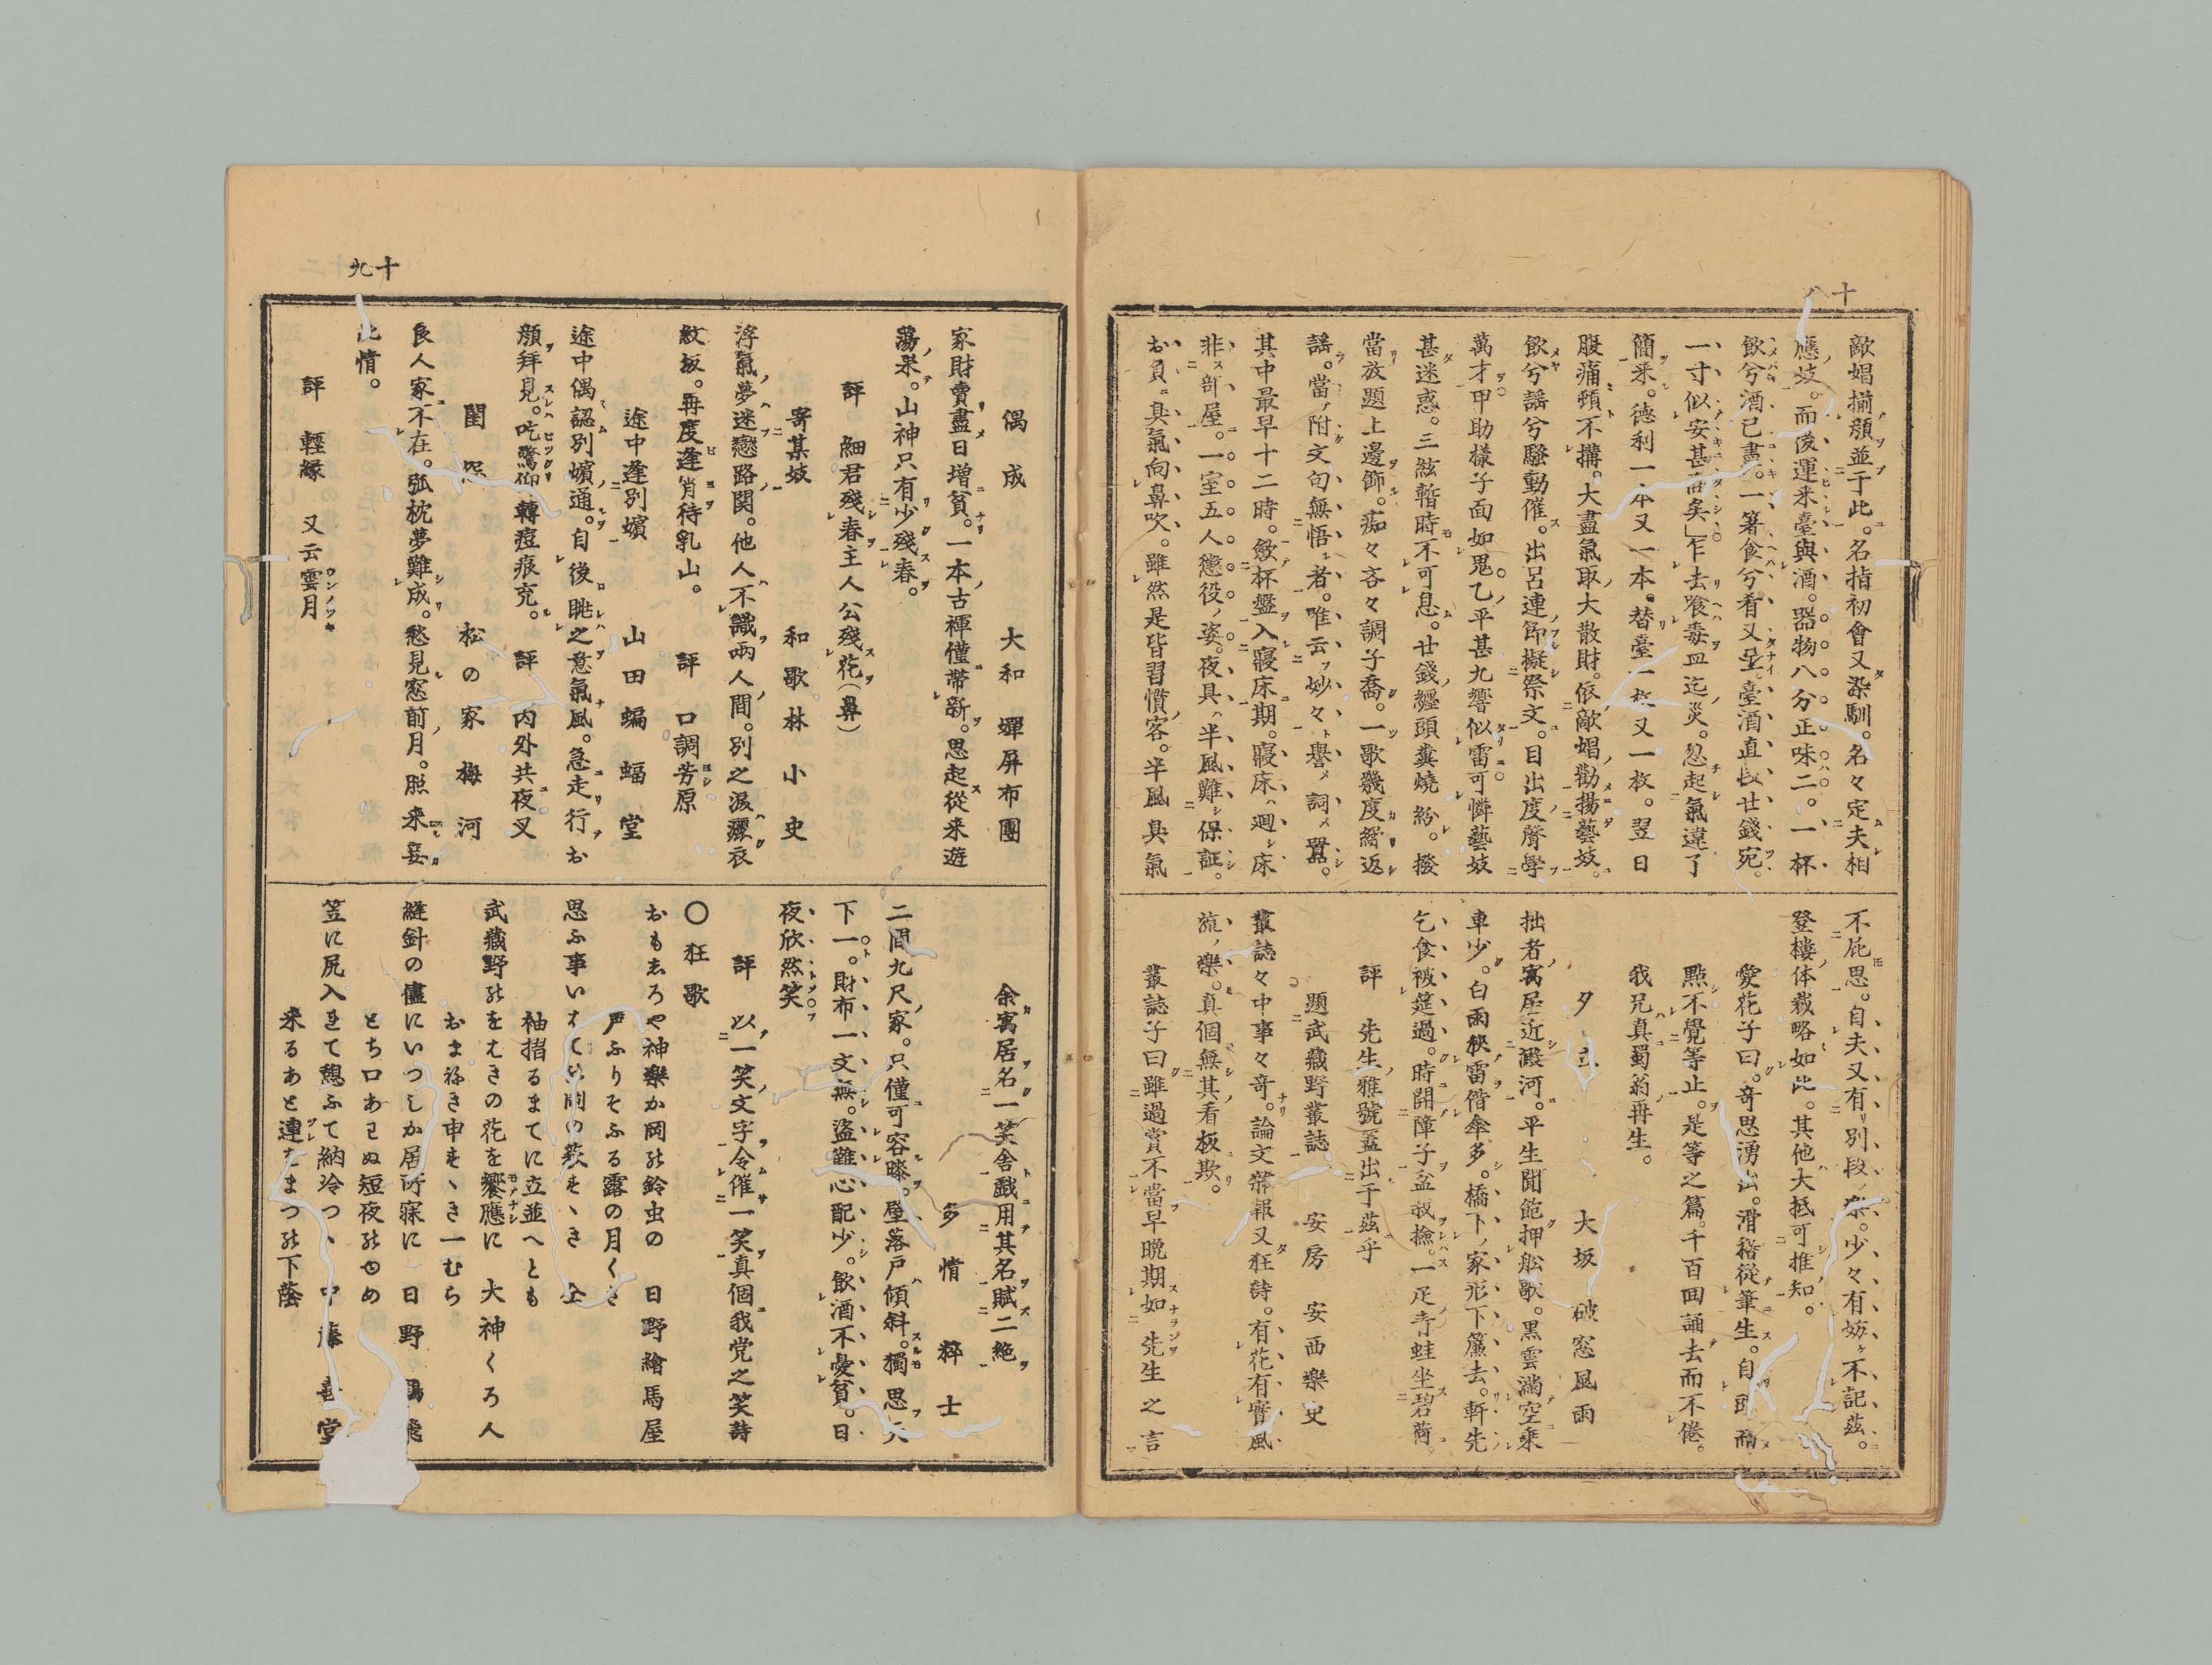 十八
敵娼揃顔並于此。名指初會又染馴。名々定夫相
應妓。而後運来臺與酒。器物八分正味二。一杯
飲兮酒已盡。一箸食兮肴又空。臺酒直段廿錢宛。
一寸似安甚高矣」乍去飡毒皿迄災。忽起氣違了
簡来。徳利一本又一本。替臺一枚又一枚。翌日
腹痛頓不搆。大盡氣取大散財。依敵娼勸揚藝妓。
飲兮謡兮騒動催。出呂連節擬祭文。目出度聲學
萬才甲助様子面如鬼。乙平甚九響似雷。可憐藝妓
甚迷惑。三絃暫時不可息。廿錢纒頭糞燒紛。撥
當放題上邊飾。痴々吝々調子喬。一歌幾度繰返
謡。當附文句無悟者。唯云妙々譽詞囂。
其中最早十二時。斂杯盤入寢床期。寢床廻床
非部屋。一室五人懲役姿。夜具半風難保証。
お負具氣向鼻吹。雖然是皆習慣客。半風具氣
不屁思。自夫又有別段樂。少々有妨不記茲。
登樓体裁略如此。其他大抵可推知。
愛花子曰。奇思湧出。滑稽從筆生。自
點不覺等止。是等之篇。千百回誦去而不倦。
我兄真蜀翁再生。
夕立　大坂　破窓風雨
拙者寓居近澱河。平生聞飽押舩歌。黒雲満空乘
車少。白雨秋雷偕傘多。橋下家形下簾去。軒先
乞食被筵過。時開障子盆裁撿。一疋青蛙坐碧荷。
評　先生雅號蓋出于茲乎
題武藏野叢誌　安房　安西樂史
叢誌々中事々奇。論文雜報又狂詩。有花有實風
流樂。真個無其看板欺。
叢誌子曰雖過賞不當早晩期如先生之言
十九
偶成　大和　輝屏布團
家財賣盡日増貧。一本古褌僅帶新。思起從来遊
蕩呆。山神只有少殘春。
評　細君殘春主人公殘花（鼻）
寄某妓　和歌林小史
浮氣夢迷戀路関。他人不識兩人間。別之涙濕衣
紋坂。再度逢宵待乳山。　評　口調芳原
途中逢別嬪　山田蝙蝠堂
途中偶認別嬪通。自後眺之意氣風。急走行お
顔拜見。吃驚仰轉痘痕充。　評　内外共夜叉
閨怨　松の家梅河
良人家不在。孤枕夢難成。愁見窓前月。照来妾
此情。
評　輕縁　又云雲月
余寓居名一笑舎戯用其名賦二絶
多情粹士
二間九尺家。只僅可容膝。壁落戸傾斜。獨思天
下一。財布一文無。盗難心配少。飲酒不憂貧。日
夜欣然笑
評　以一笑文字令催一笑真個我党之笑詩
〇狂歌
おもしろや神樂か岡の鈴虫の　日野繪馬屋
戸ふりそふる露の月く
思ふ事い
袖摺るまてに立並へとも
武藏野のをはきの花を饗應に　大神くろ人
おまねき申すゝき一むら
縫針の儘にいつしか居所寐に　日野
とち口あはぬ短夜のゆめ
笠に尻入れて憩ふて納冷つゝ
来るあと連をまつの下蔭